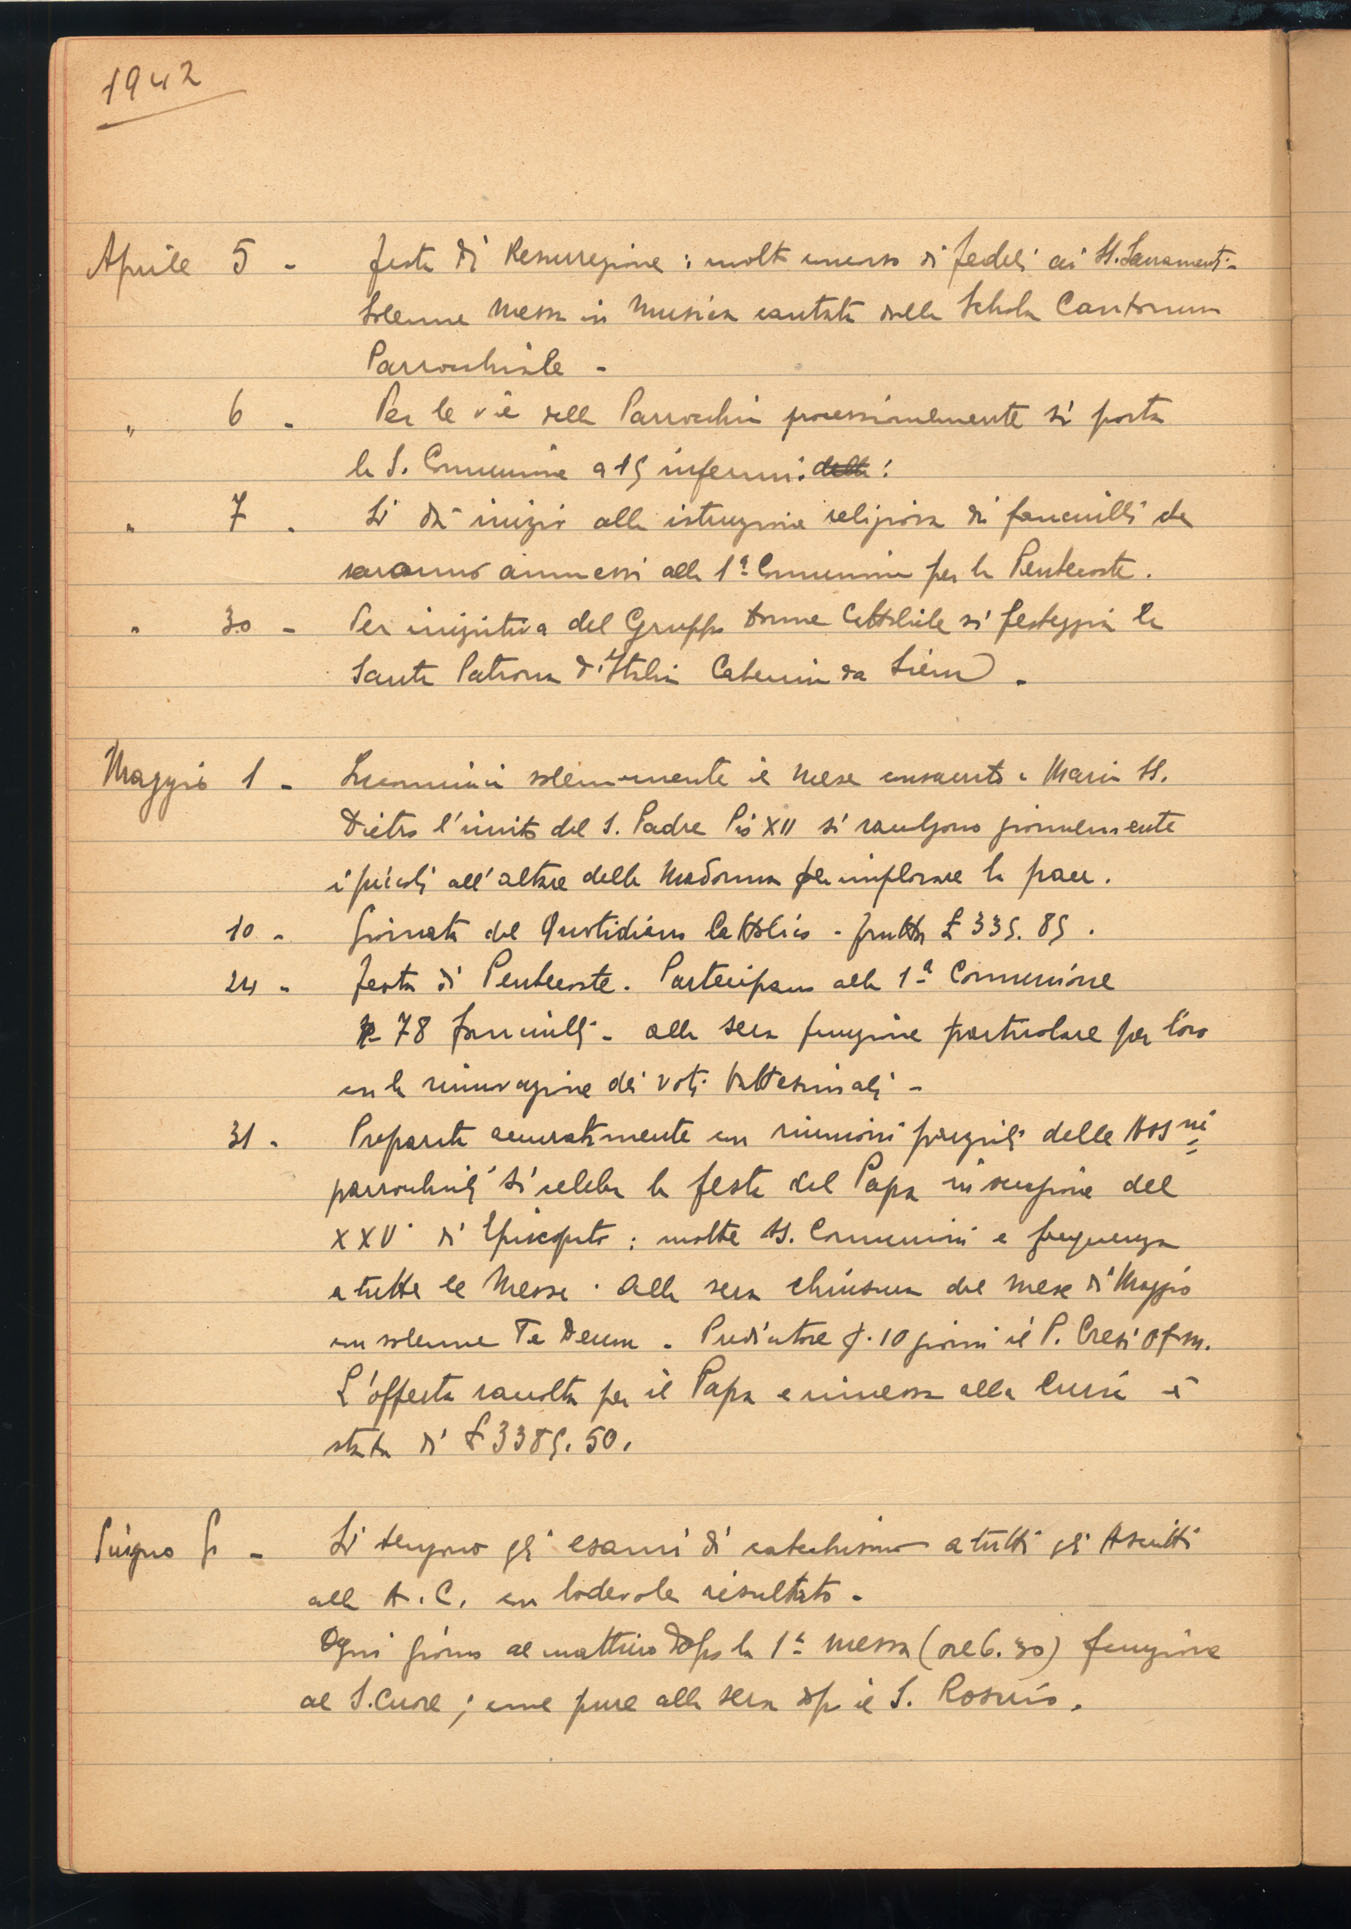 1942
Aprile 5 - festa di Resurrezione : molto concorso di fedeli ai SS. Sacramenti -
Solenne Messa in Musica cantata dalla Schola Cantorum
Parrocchiale -
" 6 - Per le vie della Parrocchia processionalmente si porta
la S. Comunione a 15 infermi. della :
" 7 - Si dà inizio alla istruzione religiosa di fanciulli che
saranno ammessi alla 1ª Comunione per la Pentecoste .
" 30 - Per iniziativa del Gruppo Donne Cattoliche si festeggia la
Santa Patrona d'Italia Caterina da Siena -
Maggio 1 - Incomincia solennemente il Mese consacrato a Maria SS.
Dietro l'invito del S. Padre Pio XII si raccolgono giornalmente
i piccoli all'altare della Madonna per implorare la pace .
10 - Giornata del Quotidiano Cattolico - frutta £ 335. 85 .
24 - festa di Pentecoste . Partecipano alla 1ª Comunione
78 fanciulli - alla sera funzione particolare per loro
con la rinnovazione dei voti battesimali -
31 - Preparata accuratamente con riunioni parziali delle Assni
parrocchiali si celebra la festa del Papa in occasione del
XXV di Episcopato : molte SS. Comunioni e frequenza
a tutte le Messe . Alla sera chiusura del mese di Maggio
con solenne Te Deum - Predicatore p. 10 giorni il P. Cresi O.f.m.
L'offerta raccolta per il Papa e rimessa alla Curia è
stata di £ 3385. 50 .
Giugno - Si tengono gli esami di catechismo a tutti gli Ascritti
alla A. C. con lodevole risultato -
Ogni giorno al mattino dopo la 1ª messa (ore 6. 30) funzione
al S. Cuore ; come pure alla sera dopo il S. Rosario .